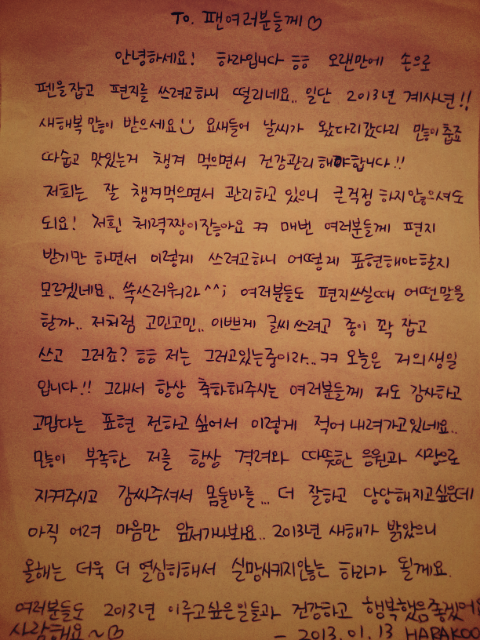 To. 팬여러분들께♡
안녕하세요! 하라입니다 ㅎㅎ 오랜만에 손으로
펜을잡고 편지를 쓰려고하니 떨리네요.. 일단 2013년 계사년!!
새해복 많이 받으세요! 요새들어 날씨가 왔다리갔다리 많이춥죠
따숩고 맛있는거 챙겨 먹으면서 건강관리해야합니다!!
저희는 잘 챙겨먹으면서 관리하고 있으니 큰걱정 하지않으셔도
되요! 저흰 체력짱이잖아요 ㅋㅋ 매번 여러분들께 편지
받기만 하면서 이렇게 쓰려고하니 어떻게 표현해야할지
모르겠네요.. 쑥쓰러워라 ^^; 여러분들도 편지쓰실때 어떤말을
할까.. 저처럼 고민고민.. 이쁘게 글씨 쓰려고 종이 꽉 잡고
쓰고 그러죠? ㅎㅎ 저는 그러고있는중이라.. ㅋㅋ 오늘은 저의생일
입니다!! 그래서 항상 축하해주시는 여러분들께 저도 감사하고
고맙다는 표현 전하고 싶어서 이렇게 적어 내려가고있네요..
많이 부족한 저를 항상 격려와 따뜻한 응원과 사랑으로
지켜주시고 감싸주셔서 몸둘바를... 더 잘하고 당당해지고싶은데
아직 어려 마음만 앞서가나봐요.. 2013년 새해가 밝았으니
올해는 더욱 더 열심히해서 실망시키지않는 하라가 될게요.
여러분들도 2013년 이루고싶은일들과 건강하고 행복했음좋겠어요
사랑해요~♡ - 2013. 01. 13 HARAKOO